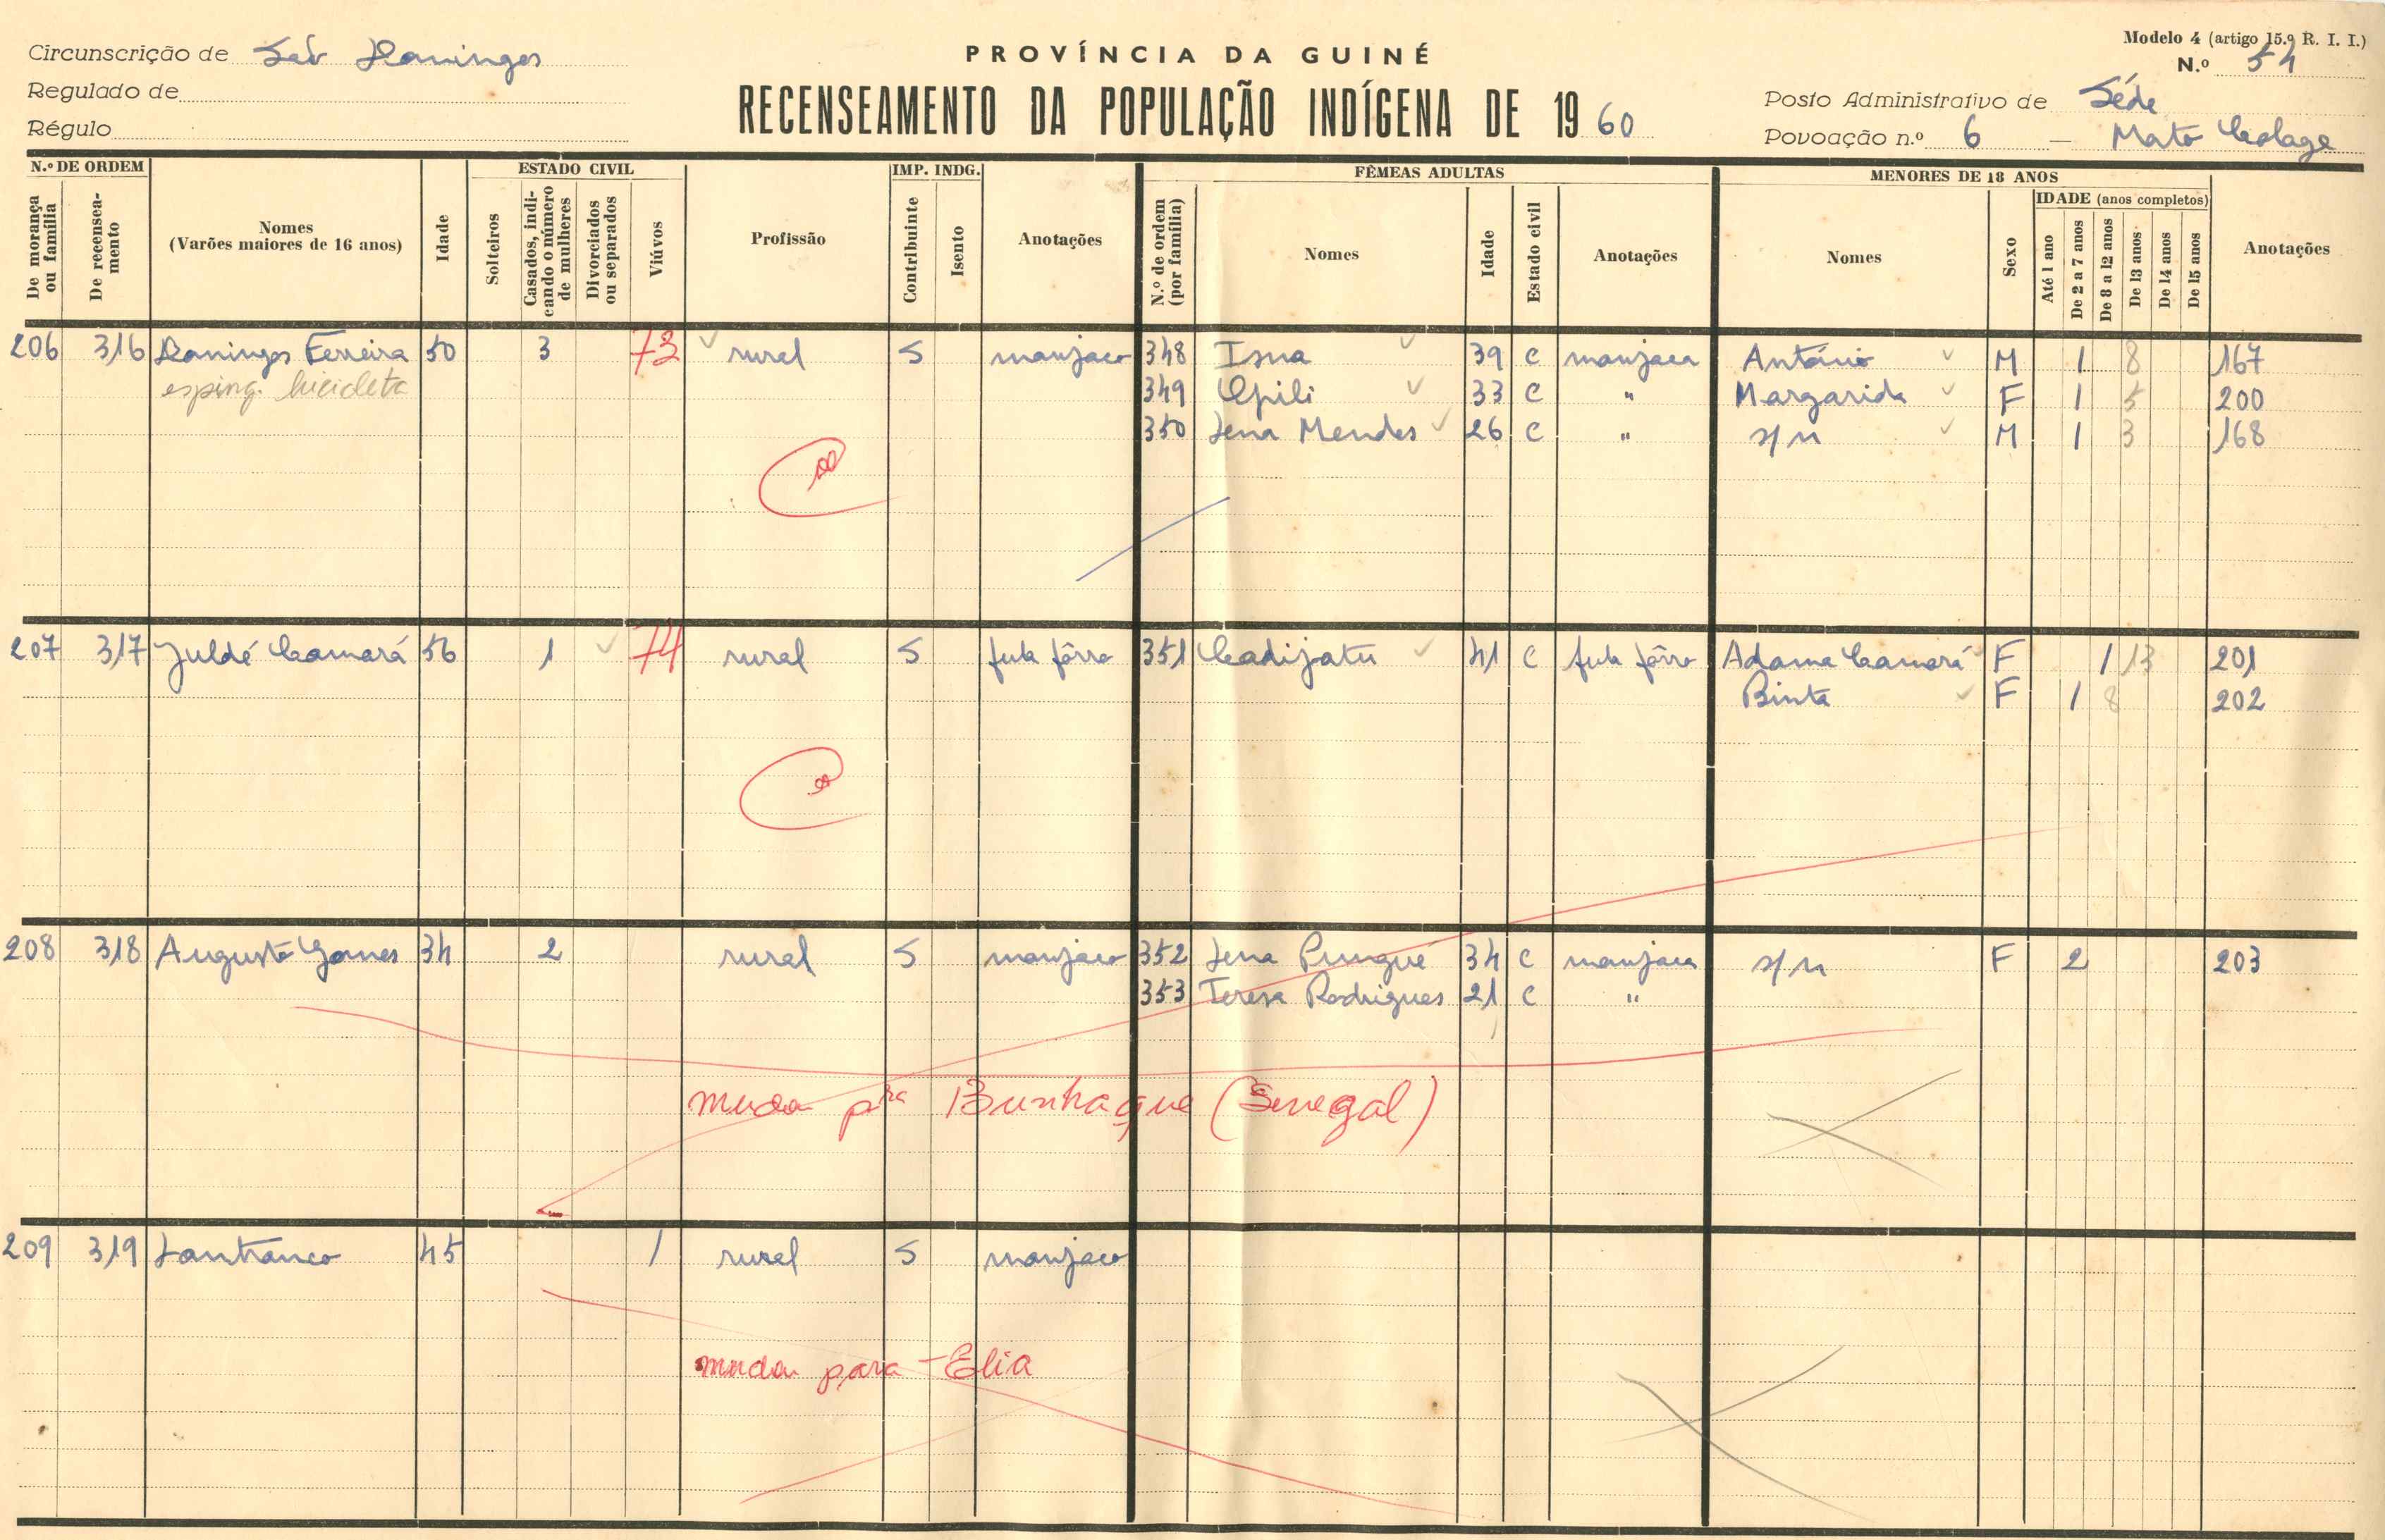 Circunscrição de São Domingos
Regulado de
Régulo
PROVÍNCIA DA GUINÉ
RECENSEAMENTO DA POPULAÇÃO INDÍGENA DE 1960
Modelo 4 (artigo 15.º R. I. I.)
N.º 54
Posto Administrativo de Séde
Povoação n.º 6 — Mato
N.º DE ORDEM
De morança ou família
De recenseamento
Nomes
(Varões maiores de 16 anos)
Idade
ESTADO CIVIL
Solteiros
Casados, indicando o número de mulheres
Divorciados ou separados
Viúvos
Profissão
IMP. INDG.
Contribuinte
Isento
Anotações
FÊMEAS ADULTAS
N.º de ordem (por família)
Nomes
Idade
Estado civil
Anotações
MENORES DE 18 ANOS
Nomes
Sexo
IDADE (anos completos)
Até 1 ano
De 2 a 7 anos
De 8 a 12 anos
De 13 anos
De 14 anos
De 15 anos
Anotações
206 316 Domingos Ferreira 50 3 73 rural S manjaco 348 Isna 39 C manjaca António M 1 8 167
esping. bicicleta 349 Opili 33 C " Margarida F 1 5 200
350 Jena Mendes 26 C " s/n M 1 3 168
207 317 Juldé Camará 56 1 74 rural S fula fôrro 351 Cadijatu 41 C fula fôrro Adama Camará F 1 13 201
Binta F 1 8 202
208 318 Augusto Gomes 34 2 rural S manjaco 352 Jena Pungue 34 C manjaca s/n F 2 203
353 Teresa Rodrigues 21 C "
muda pra Bunhaque (Senegal)
209 319 45 1 rural S manjaco
muda para - Elia